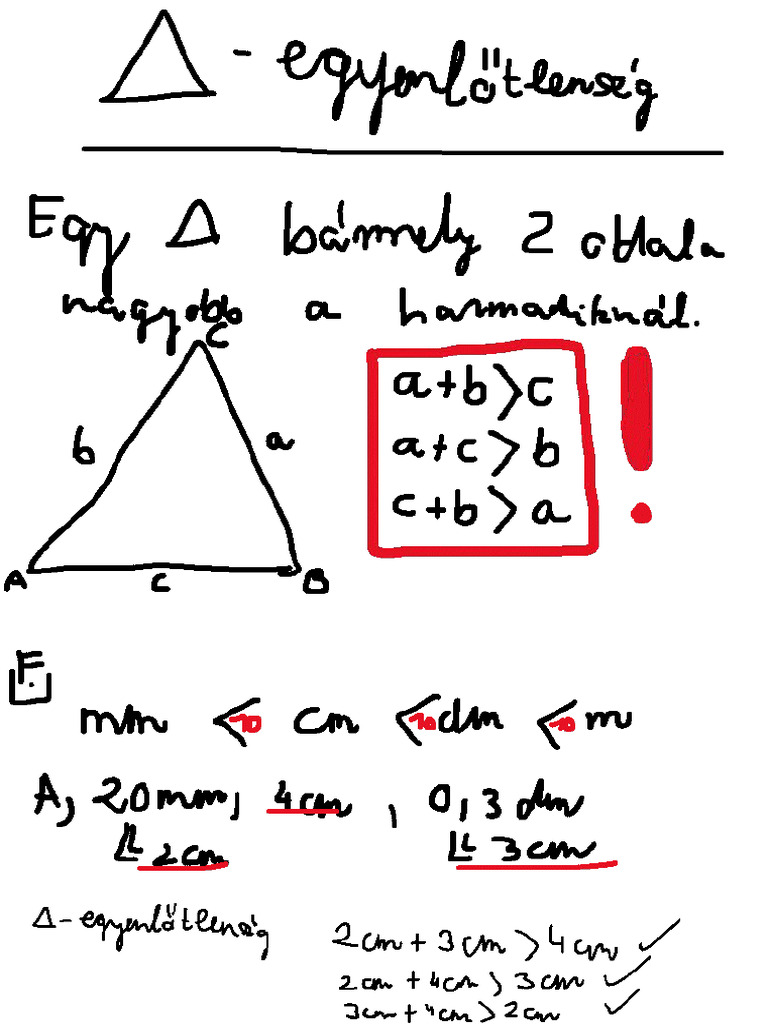 Δ - egyenlőtlenség
Egy Δ bármely 2 oldala
nagyobb a harmadiknál.
C
b a
A c B
a+b>c !
a+c>b
c+b>a
F.
mm <10 cm <10 dm <10 m
A, 20mm, 4cm, 0,3 dm
2cm 3cm
Δ-egyenlőtlenség
2cm + 3cm > 4cm ✓
2cm + 4cm > 3cm ✓
3cm + 4cm > 2cm ✓